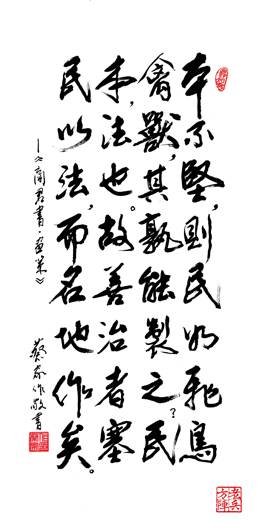 本不堅,則民如飛鳥
禽獸,其孰能製之?民
本,法也。故善治者塞
民以法,而名地作矣。
—《商君書·畫策》
蔡家作敬書